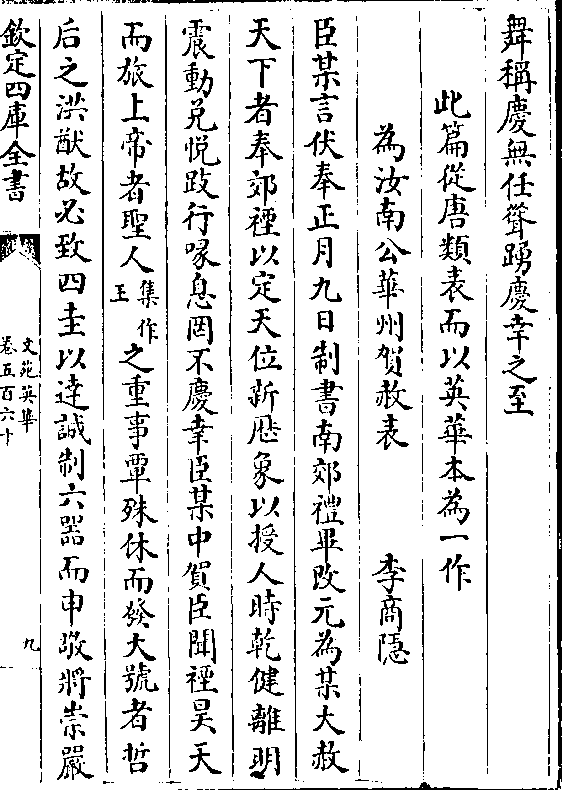 舞稱慶無任聳踴慶幸之至
此篇從唐類表而以英華本為一作
為汝南公華州賀赦表 李商隱
臣某言伏奉正月九日制書南郊禮畢改元為某大赦
天下者奉郊禋以定天位新厯象以授人時乾健離明
震動兌悅跂行喙息罔不慶幸臣某中賀臣聞禋昊天
而旅上帝者聖人集作王之重事覃殊休而發大號者哲
后之洪猷故必致四圭以逹誠制六器而申敬將崇嚴
欽定四庫全書
文苑英華
卷五百六十
九